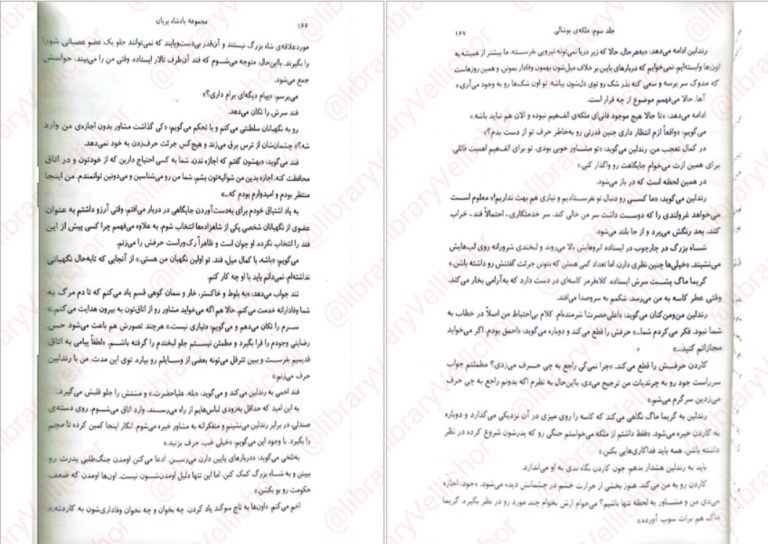 ۱۶۶
مجموعه پادشاه پریان
موردعلاقه‌ی شاه بزرگ نیستند و آن‌قدر بی‌دست‌وپایند که نمی‌توانند جلو یک عضو عصبانی شورا
را بگیرند. بااین‌حال، متوجه می‌شوم که فند آن‌طرف تالار ایستاده. وقتی من را می‌بیند، حواسش
جمع می‌شود.
می‌پرسم: «پیام دیگه‌ای برام داری؟»
فند سرش را تکان می‌دهد.
رو به نگهبانان سلطنتی می‌کنم و با تحکم می‌گویم: «کی گذاشت مشاور بدون اجازه‌ی من وارد
شه؟» چشمان‌شان از ترس برق می‌زند و هیچ‌کس جرئت حرف‌زدن به خود نمی‌دهد.
فند می‌گوید: «بهشون گفتم که اجازه ندن. شما به کسی احتیاج دارین که از خودتون و در اتاق
محافظت کنه. اجازه بدین من شوالیه‌تون بشم. شما من رو می‌شناسین و می‌دونین توانمندم. من اینجا
منتظر بودم و امیدوارم بودم که...»
به یاد اشتیاق خودم برای به‌دست‌آوردن جایگاهی در دربار می‌افتم. وقتی آرزو داشتم به عنوان
عضوی از نگهبانان شخصی یکی از شاهزاده‌ها انتخاب شوم. به علاوه می‌فهمم چرا کسی پیش از این
فند را انتخاب نکرده. او جوان است و ظاهراً رک‌وراست حرفش را می‌زنم.
می‌گویم: «باشه، با کمال میل. فند، تو اولین نگهبان من هستی.» از آنجایی که تابه‌حال نگهبانی
نداشته‌ام، نمی‌دانم باید با او چه کار کنم.
فند جواب می‌دهد: «به بلوط و خاکستر، خار و سمان کوهی قسم یاد می‌کنم که تا دم مرگ به
شما وفادارانه خدمت می‌کنم. حالا هم اگه می‌خواید مشاور رو از اتاق‌تون به بیرون هدایت می‌کنم.»
سرم را تکان می‌دهم و می‌گویم: «نیازی نیست.» هرچند تصورش هم باعث می‌شود حس
رضایتی وجودم را فرا بگیرد و مطمئن نیستم جلو لبخندم را گرفته باشم. «لطفاً پیامی به اتاق
قدیمیم بفرست و ببین تترفل می‌تونه بعضی از وسایلم رو بیاره. توی این مدت، من با رندلین
حرف می‌زنم.»
فند اخمی به رندلین می‌کند و می‌گوید: «بله، علیاحضرت» و مشتش را جلو قلبش می‌گیرد.
به این امید که حداقل به‌زودی لباس‌هایم از راه می‌رسند، وارد اتاق می‌شوم. روی دسته‌ی
صندلی، در برابر رندلین می‌نشینم و متفکرانه به مشاور خیره می‌شوم. انگار اینجا کمین کرده تا مچم
را بگیرد. با وجود این می‌گویم: «خیلی خب، حرف بزنید.»
به‌تلخی می‌گوید: «دربارهای پایین دارن می‌رسن. ادعا می‌کنن اومدن جنگ‌طلبی پدرت رو
ببینن و به شاه بزرگ کمک کنن. اما این تنها دلیل اومدن‌شون نیست. اون‌ها اومدن که ضعف
حکومت رو بو بکشن.»
اخم می‌کنم. «اون‌ها به تاج سوگند یاد کردن. چه بخوان و چه نخوان وفاداری‌شون به کاردنه.»
جلد سوم: ملکه‌ی پوشالی
۱۶۷
رندلین ادامه می‌دهد: «به‌هرحال، حالا که زیر دریا نمی‌تونه نیرویی بفرسته، ما بیشتر از همیشه به
اون‌ها وابسته‌ایم. نمی‌خوایم که دربارهای پایین برخلاف میل‌شون بهمون وفادار بمونن. و همین روزهاست
که مدوک سر برسه و سعی کنه بذر شک رو توی دل‌شون بپاشه. تو اون شک‌ها رو به وجود می‌آری.»
آها، حالا می‌فهمم موضوع از چه قرار است.
ادامه می‌دهد: «تا حالا هیچ موجود فانی‌ای ملکه‌ی الف‌هیم نبوده و الان هم نباید باشه.»
می‌گویم: «واقعاً ازم انتظار داری چنین قدرتی رو به‌خاطر حرف تو از دست بدم؟»
در کمال تعجب من، رندلین می‌گوید: «تو مشاور خوبی بودی. تو برای الف‌هیم اهمیت قائلی.
برای همین ازت می‌خوام جایگاهت رو واگذار کنی.»
در همین لحظه است که در باز می‌شود.
رندلین می‌گوید: «ما کسی رو دنبال تو نفرستادیم و نیازی هم بهت نداریم!» معلوم است
می‌خواهد غرولندی را که دوست داشت سر من خالی کند، سر خدمتکاری ـ احتمالاً فند ـ خراب
کند. بعد رنگش می‌پرد و از جا بلند می‌شود.
شاه بزرگ در چارچوب در ایستاده. ابروهایش بالا می‌روند و لبخندی شرورانه روی لب‌هایش
می‌نشیند. «خیلی‌ها چنین نظری دارن، اما تعداد کمی هستن که بتونن جرئت گفتنش رو داشته باشن.»
گریما ماگ پشت سرش ایستاده. کلاه‌قرمز کاسه‌ای در دست دارد که به‌آرامی بخار می‌کند.
وقتی عطر کاسه به من می‌رسد، شکمم به سروصدا می‌افتد.
رندلین من‌ومن‌کنان می‌گوید: «اعلی‌حضرت! شرمنده‌ام. کلام بی‌احتیاط من اصلاً در خطاب به
شما نبود. فکر می‌کردم شما...» حرفش را قطع می‌کند و دوباره می‌گوید: «احمق بودم. اگر می‌خواید
مجازاتم کنید...»
کاردن حرفش را قطع می‌کند. «چرا نمی‌گی راجع به چی حرف می‌زدی؟ مطمئنم جواب
سرراست جود رو به چرندیات من ترجیح می‌دی. بااین‌حال به نظرم اگه بدونم راجع به چی حرف
می‌زدین سرگرم می‌شم.»
رندلین به گریما ماگ نگاهی می‌کند که کاسه را روی میزی در آن نزدیکی می‌گذارد و دوباره
به کاردن خیره می‌شود. «فقط داشتم از ملکه می‌خواستم جنگی رو که پدرشون شروع کرده در نظر
داشته باشن. همه باید فداکاری‌هایی بکنن.»
باید به رندلین هشدار بدهم، چون کاردن نگاه بدی به او می‌اندازد.
کاردن رو به من می‌کند. هنوز بخشی از حرارت خشم در چشمانش دیده می‌شود. «جود، اجازه
می‌دی من و مشاور یه لحظه تنها باشیم؟ می‌خوام ازش بخوام چند مورد رو در نظر بگیره. گریما
ماگ هم برات سوپ آورده.»
@libraryVellichor